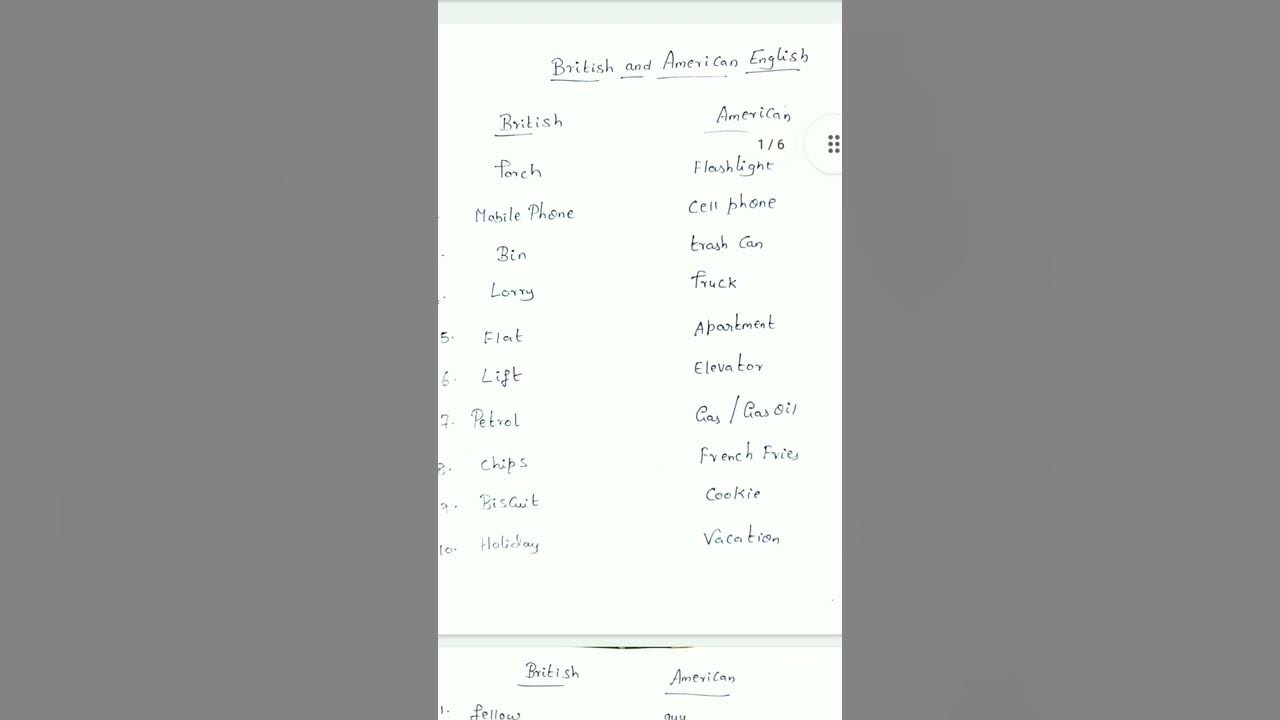 British and American English
British American
1/6
Torch Flashlight
Mobile Phone Cell phone
Bin trash Can
Lorry Truck
5. Flat Apartment
6. Lift Elevator
7. Petrol Gas / Gas Oil
8. Chips French Fries
9. Biscuit Cookie
10. Holiday Vacation
British American
1. fellow guy